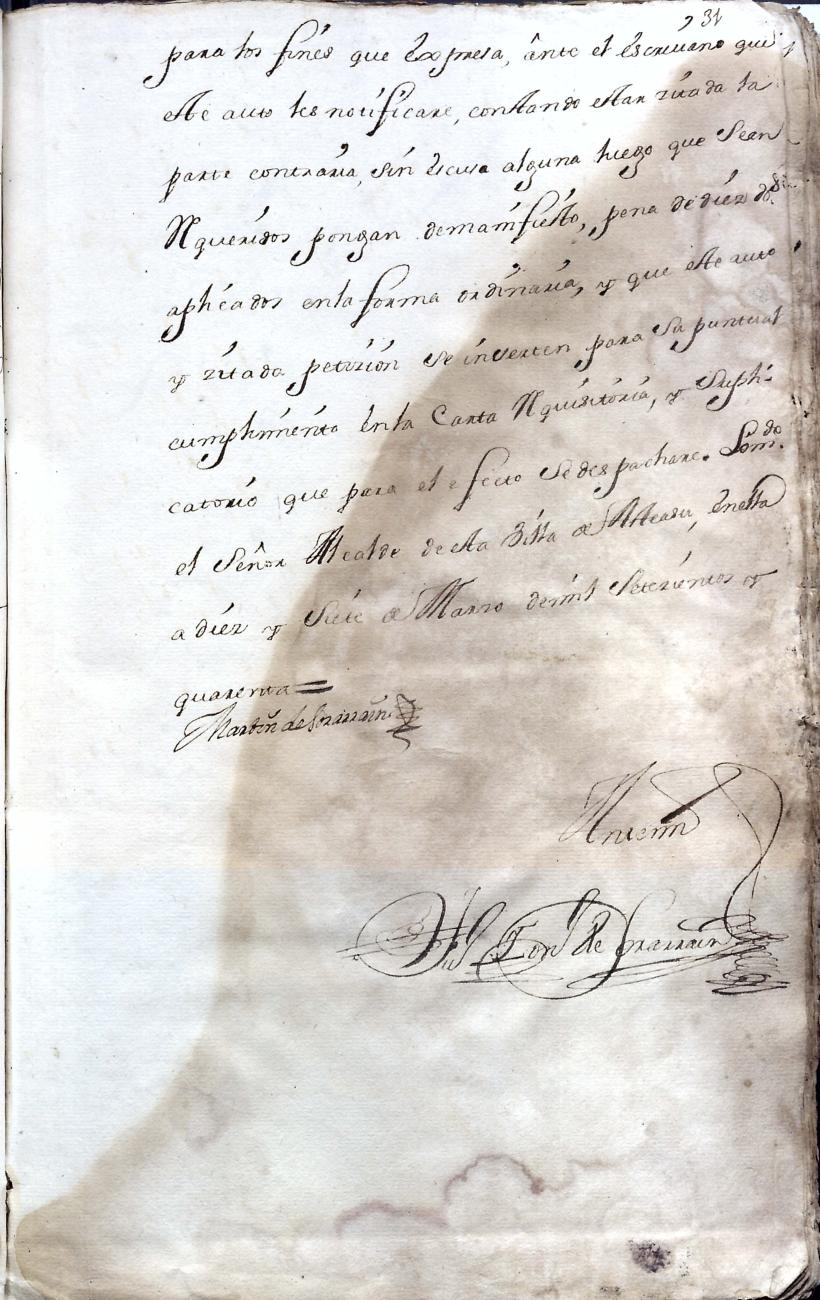 31
para los fines que expresa, ante el escriuano que
este auto les notificare, constando estar zitada la
parte contraria, sin escusa alguna luego que sean
Requeridos pongan demanifiesto, pena de diez
aplicados enla forma ordinaria, y que este auto
y zitada petizion se inserten para su puntual
cumplimiento enla Carta Requisitoria, y Supli-
catorio que para el efecto se despachare. Lo m.do
el Señor Alcalde desta Villa de enella
a diez y siete de Marzo demil setezientos y
quarenta=
Martin de
Antemi
de